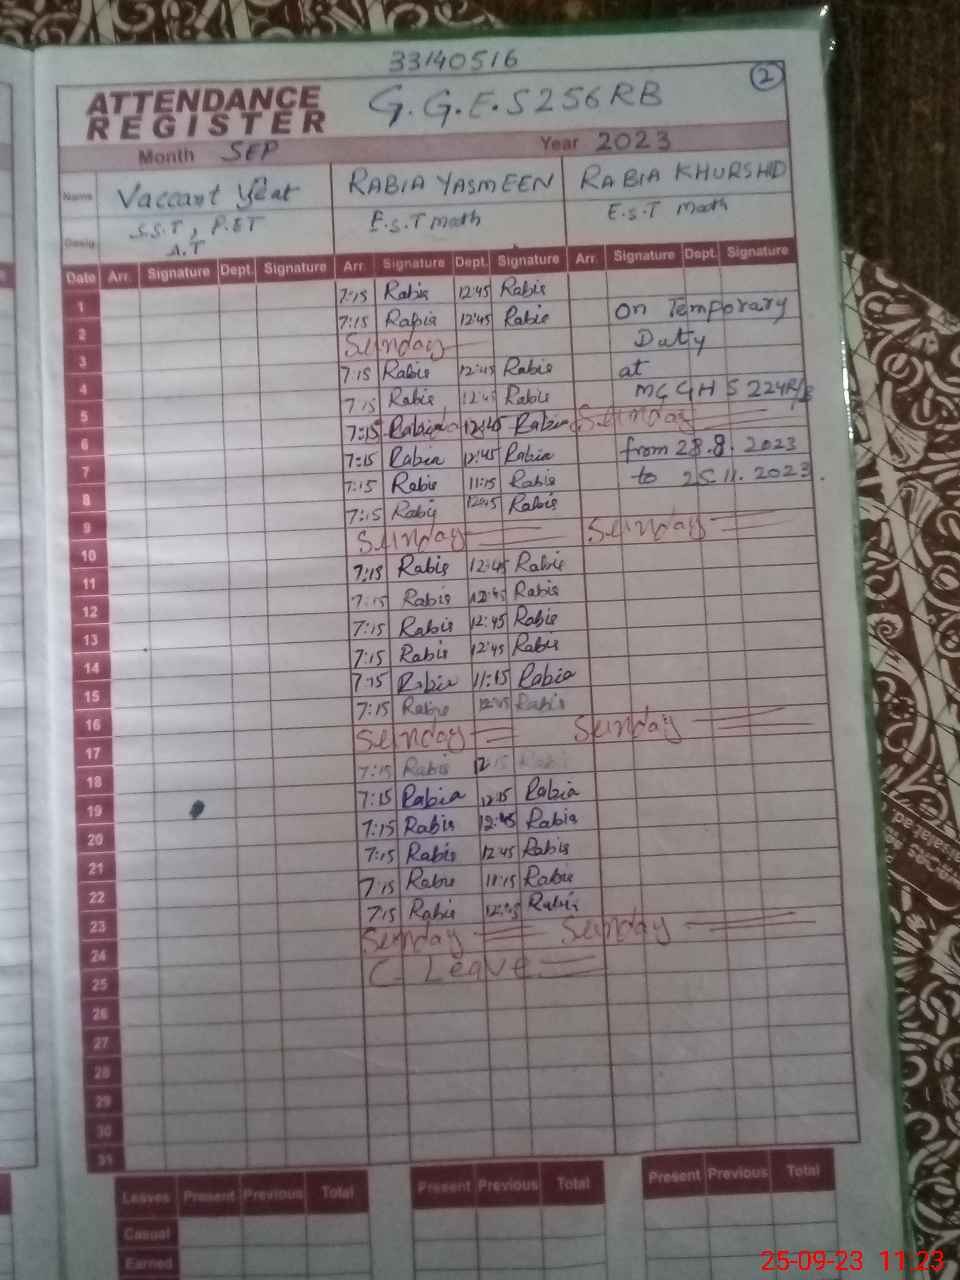 33140516
2
ATTENDANCE REGISTER
G.G.E.S 256 RB
Month SEP Year 2023
Name Vaccant RABIA YASMEEN RABIA KHURSHID
Desig. S.S.T, P.ET A.T E.S.T math E.S.T math
Date Arr. Signature Dept. Signature Arr. Signature Dept. Signature Arr. Signature Dept. Signature
1 7:15 Rabia 12:45 Rabia
2 7:15 Rabia 12:45 Rabia On Temporary
3 Sunday Duty
4 7:15 Rabia 12:45 Rabia at
5 7:15 Rabia 12:45 Rabia
6 7:15 Rabia 12:45 Rabia Sunday
7 7:15 Rabia 12:45 Rabia from 28.8.2023
8 7:15 Rabia 11:15 Rabia to 25.11.2023.
9 7:15 Rabia 12:45 Rabia
10 Sunday Sunday
11 7:15 Rabia 12:45 Rabia
12 7:15 Rabia 12:45 Rabia
13 7:15 Rabia 12:45 Rabia
14 7:15 Rabia 12:45 Rabia
15 7:15 Rabia 11:15 Rabia
16 7:15 Rabia Rabia
17 Sunday Sunday
18 7:15 Rabia
19 7:15 Rabia Rabia
20 7:15 Rabia 12:45 Rabia
21 7:15 Rabia 12:45 Rabia
22 7:15 Rabia 11:15 Rabia
23 7:15 Rabia Rabia
24 Sunday Sunday
25 C. Leave
26
27
28
29
30
31
Leaves Present Previous Total Present Previous Total Present Previous Total
Casual
Earned
25-09-23 11:23